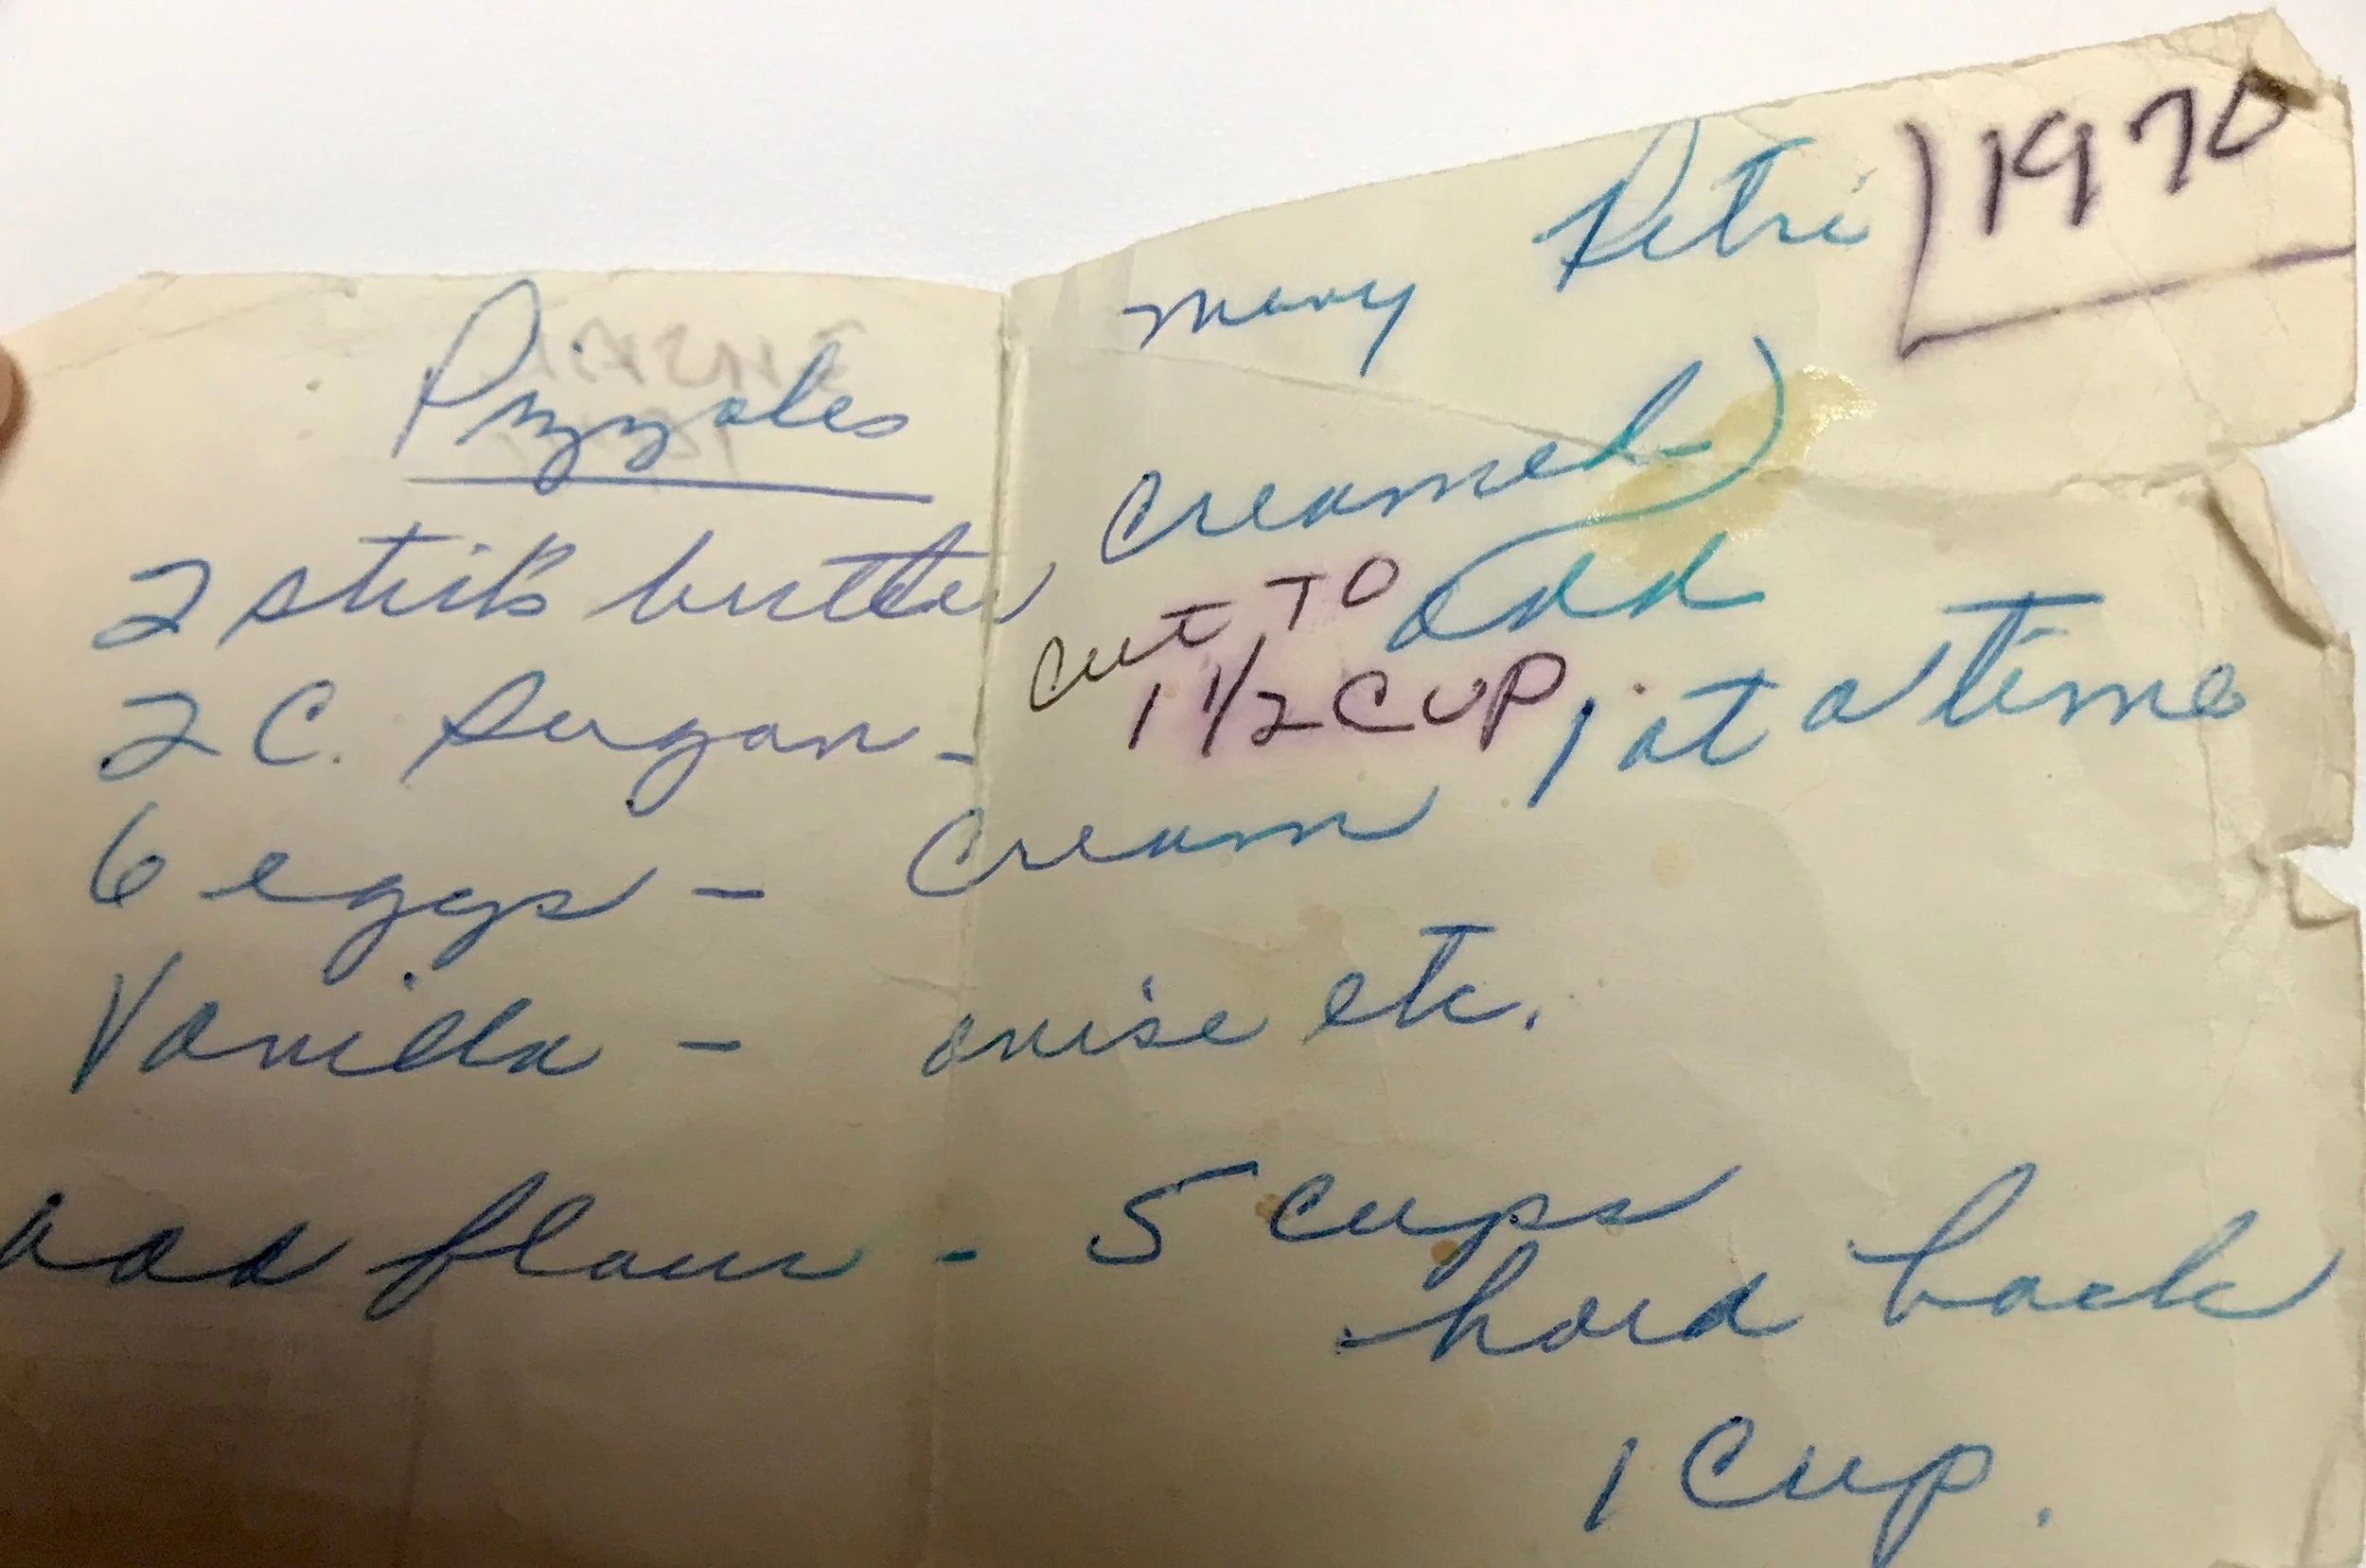 Mary Petri 1970
Pizzales
2 stiks butter creamed)
2 C. Sugar - cut TO 1 1/2 CUP
add
6 eggs - Cream 1 at a time
Vanilla - anise etc.
add flour - 5 cups
hold back
1 Cup.